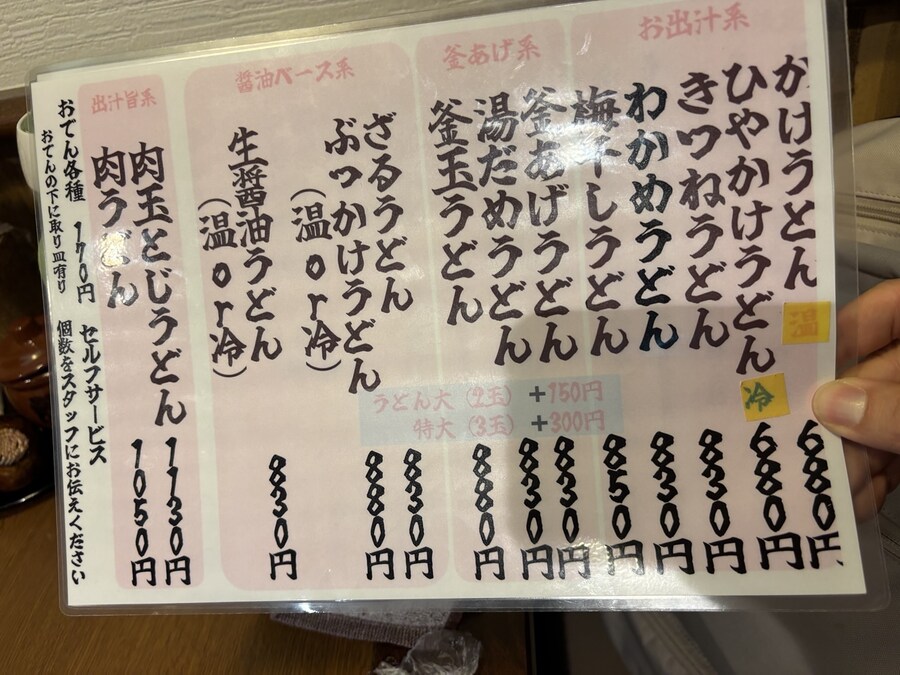 お出汁系
かけうどん 温 680円
ひやかけうどん 冷 680円
きつねうどん 830円
わかめうどん 830円
梅干しうどん 850円
釜あげ系
釜あげうどん 830円
湯だめうどん 830円
釜玉うどん 880円
醤油ベース系
ざるうどん 880円
ぶっかけうどん 880円
(温or冷)
生醤油うどん 830円
(温or冷)
うどん大(2玉) +150円
特大(3玉) +300円
出汁旨系
肉玉とじうどん 1130円
肉うどん 1050円
おでん各種 170円 セルフサービス
おでんの下に取り皿有り 個数をスタッフにお伝えください